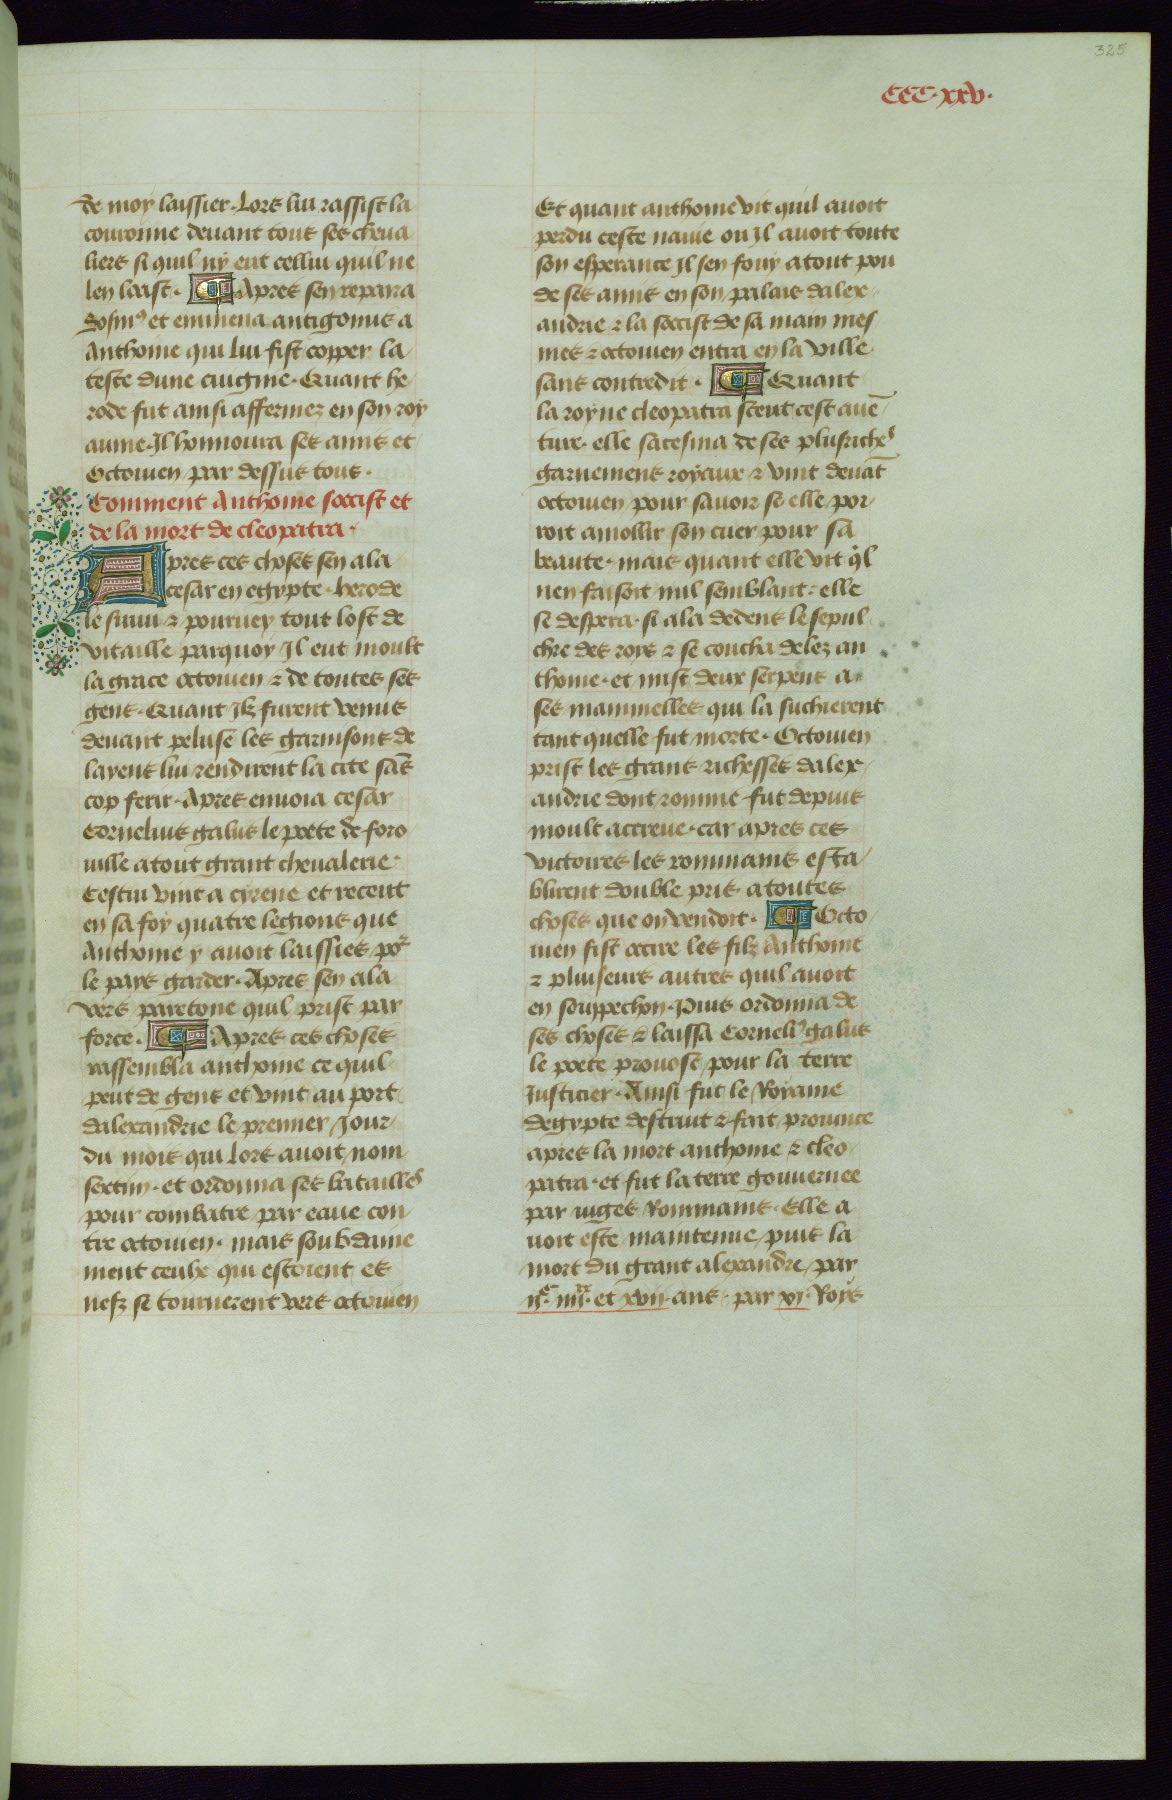 325
CCC·xxv·
de moy laissier. Lors lui rassist la
couronne deuant tous ses cheua
liers si quil ny eut cellui quil ne
len loast. Apres sen repaira
Sosius et emmena antigonus a
Anthoine qui lui fist copper la
teste dune cuignie. Quant he
rode fut ainsi affermez en son roy
aume. Il honnoura ses amis et
Octouien par dessus tous.
Comment Anthoine soccist et
de la mort de cleopatra.
Apres ces choses sen ala
cesar en egypte. herode
le siuui & pouruey tout lost de
vitaille parquoy Il eut moult
la grace octouien & de toutes ses
gens. Quant Ilz furent venus
deuant peluse les garnisons de
layens lui rendirent la cite sãs
cop ferir. Apres enuoia cesar
Cornelius galus le poete de foro
iulle atout grant cheualerie.
Cestui vint a cyrene et receut
en sa foy quatre legions que
Anthoine y auoit laissies por
le pays garder. Apres sen ala
vers paretone quil prist par
force. Apres ces choses
rassembla anthoine ce quil
peut de gens et vint au port
dalexandrie le premier Jour
du mois qui lors auoit nom
sextim. et ordonna ses batailles
pour combatre par eaue con
tre octouien. mais soubdaine
ment ceulx qui estoient es
nefz se tournerent vers octouien
Et quant anthoine vit quil auoit
perdu ceste nauie ou Il auoit toute
son esperance Il sen fouy atout pou
de ses amis en son palais dalex
andrie & la soccist de sa main mes
mes & octouien entra en la ville
sans contredit. Quant
la royne cleopatra sceut cest auẽ
ture. elle sacesma de ses plusriches
garnemens royaux & vint deuãt
octouien pour sauoir se elle por
roit amollir son cuer pour sa
beaute. mais quant elle vit ql
nen faisoit nul semblant. elle
se despera. si ala dedens le sepul
chre des roys & se coucha delez an
thoine. et mist deux serpens a
ses mammelles qui la suchierent
tant quelle fut morte. Octouien
prist les grans richesses dalex
andrie dont romme fut depuis
moult accreue. car apres ces
victoires les rommains esta
blirent double pris atoutes
choses que on vendoit. Octo
uien fist occire les filz Anthoine
& pluiseurs autres quil auoit
en souppechon. Puis ordonna de
ses choses & laissa Corneli9 galus
le poete prouost pour la terre
Justicier. Ainsi fut le Royame
degypte destruit & fait prouince
apres la mort anthoine & cleo
patra. et fut la terre gouuernee
par iuges Rommains. Elle a
uoit este maintenue puis la
mort du grant alexandre par
ijc. iiijxx. et xvij. ans. par xj Roys